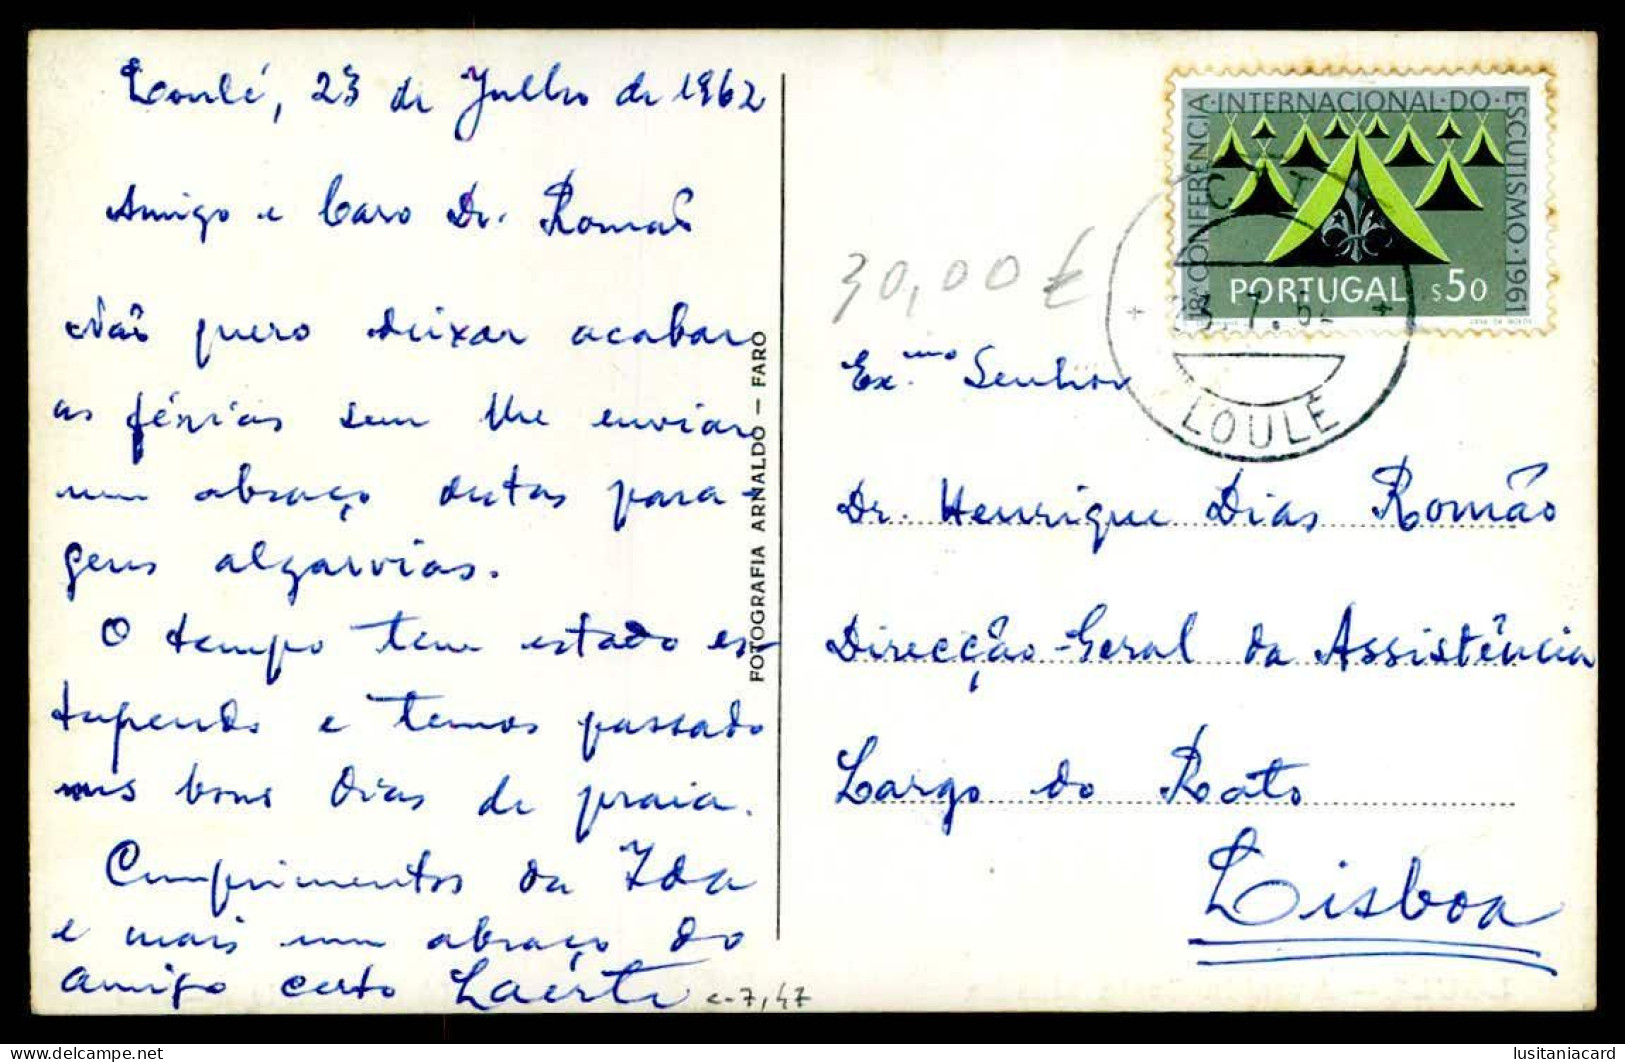 Loulé, 23 de Julho de 1962
Amigo e Caro Dr. Romão
Não quero deixar acabar
as férias sem lhe enviar
um abraço destas para-
gens algarvias.
O tempo tem estado es-
tupendo e temos passado
uns bons dias de praia.
Cumprimentos da Ida
e mais um abraço do
amigo certo Laerte
c-7,47
FOTOGRAFIA ARNALDO — FARO
30,00 €
18ª CONFERÊNCIA · INTERNACIONAL · DO · ESCUTISMO · 1961
PORTUGAL $50
23.7.62
LOULÉ
Ex.mo Senhor
Dr. Henrique Dias Romão
Direcção-Geral da Assistência
Largo do Rato
Lisboa
lusitaniacard
delcampe.net